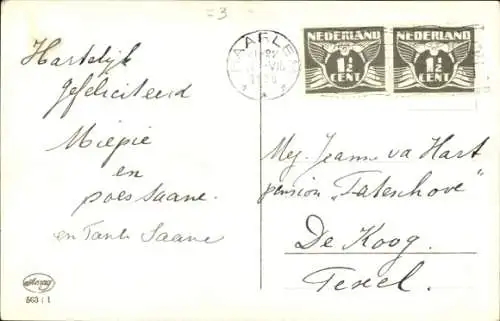 = 3
Hartelijk
gefeliciteerd
Miepie
en
poes Saane.
en Tante Saane
HAARLEM
NEDERLAND
1½
CENT
NEDERLAND
1½
CENT
Mej. Jeanne va Hart
pension „Tateshove"
De Koog.
Texel.
563 : 1